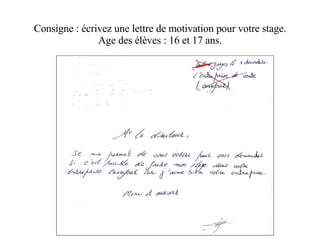 Consigne : écrivez une lettre de motivation pour votre stage.
Age des élèves : 16 et 17 ans.
le 3 décembre.
L'entreprise de vente
(carrefour)
Mr le directeur,
Je me permet de vous écrire pour vous demander
si c'est possible de faire mon stage dans votre
entreprise carrefour car j'aime bien votre entreprise.
Merci et aurevoir